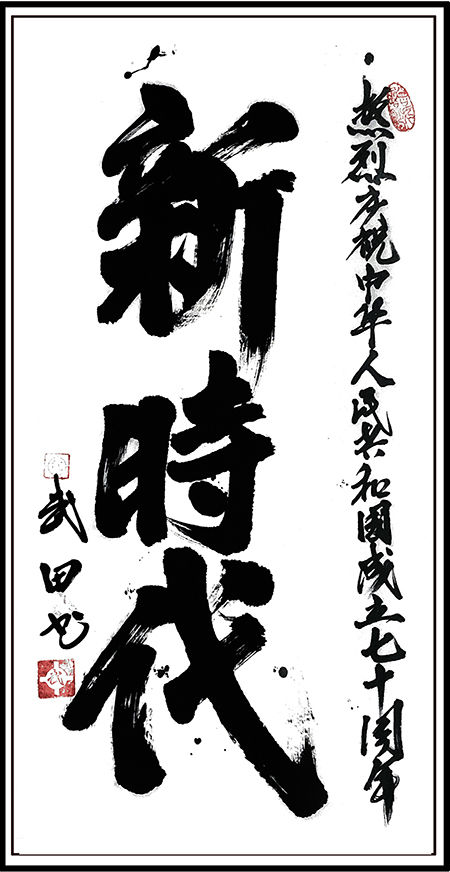 热烈庆祝中华人民共和國成立七十周年
新時代
武田书